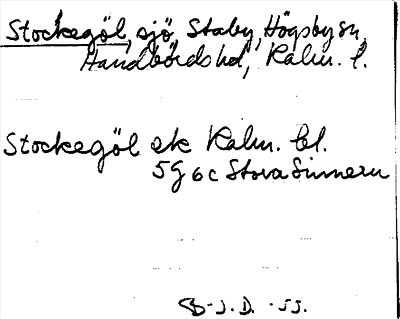 Stockegöl, sjö, Staby, Högsby sn,
Handbörds hd, Kalm. l.
Stockegöl ek Kalm. bl.
5 G 6 c Stora Sinnern
J. D. - 55.